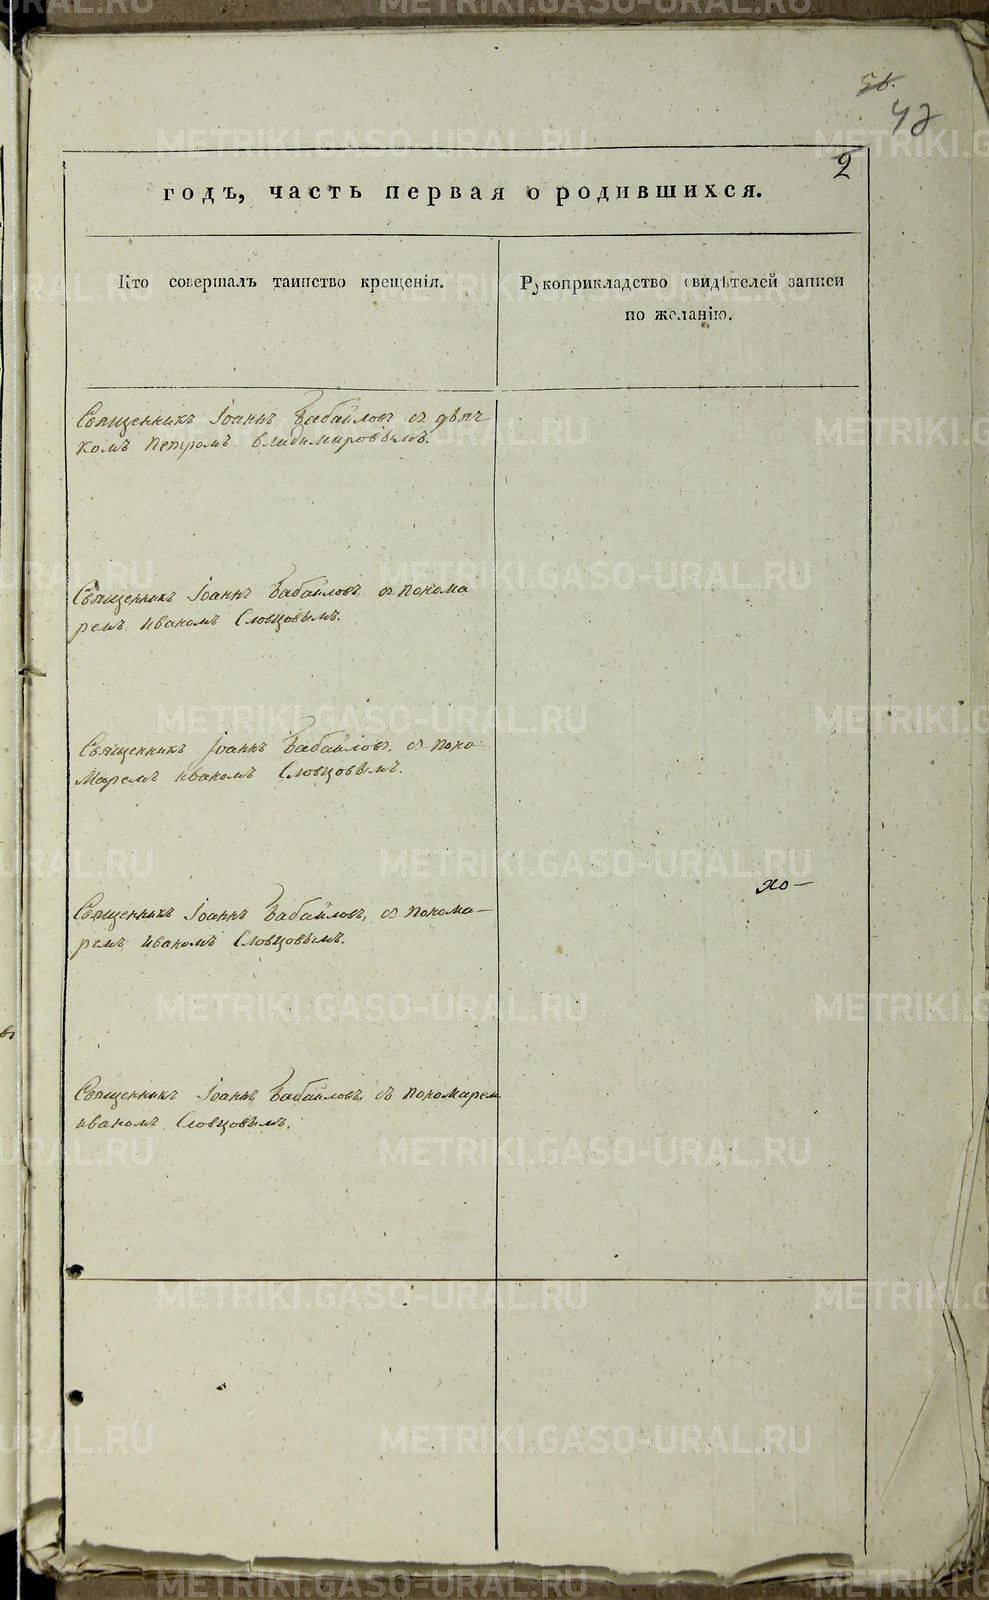 56.
42
2
годъ, часть первая о родившихся.
Кто совершалъ таинство крещенія.
Рукоприкладство свидѣтелей записи
по желанію.
Священникъ Іоаннъ Бабайловъ съ дьяч
комъ Петромъ Владимировымъ.
Священникъ Іоаннъ Бабайловъ съ понома
ремъ Иваномъ Словцовымъ.
Священникъ Іоаннъ Бабайловъ, съ поно
маремъ Иваномъ Словцовымъ.
хо-
Священникъ Іоаннъ Бабайловъ, съ понома-
ремъ Иваномъ Словцовымъ.
Священникъ Іоаннъ Бабайловъ, съ пономарем
Иваномъ Словцовымъ.
METRIKI.GASO-URAL.RU